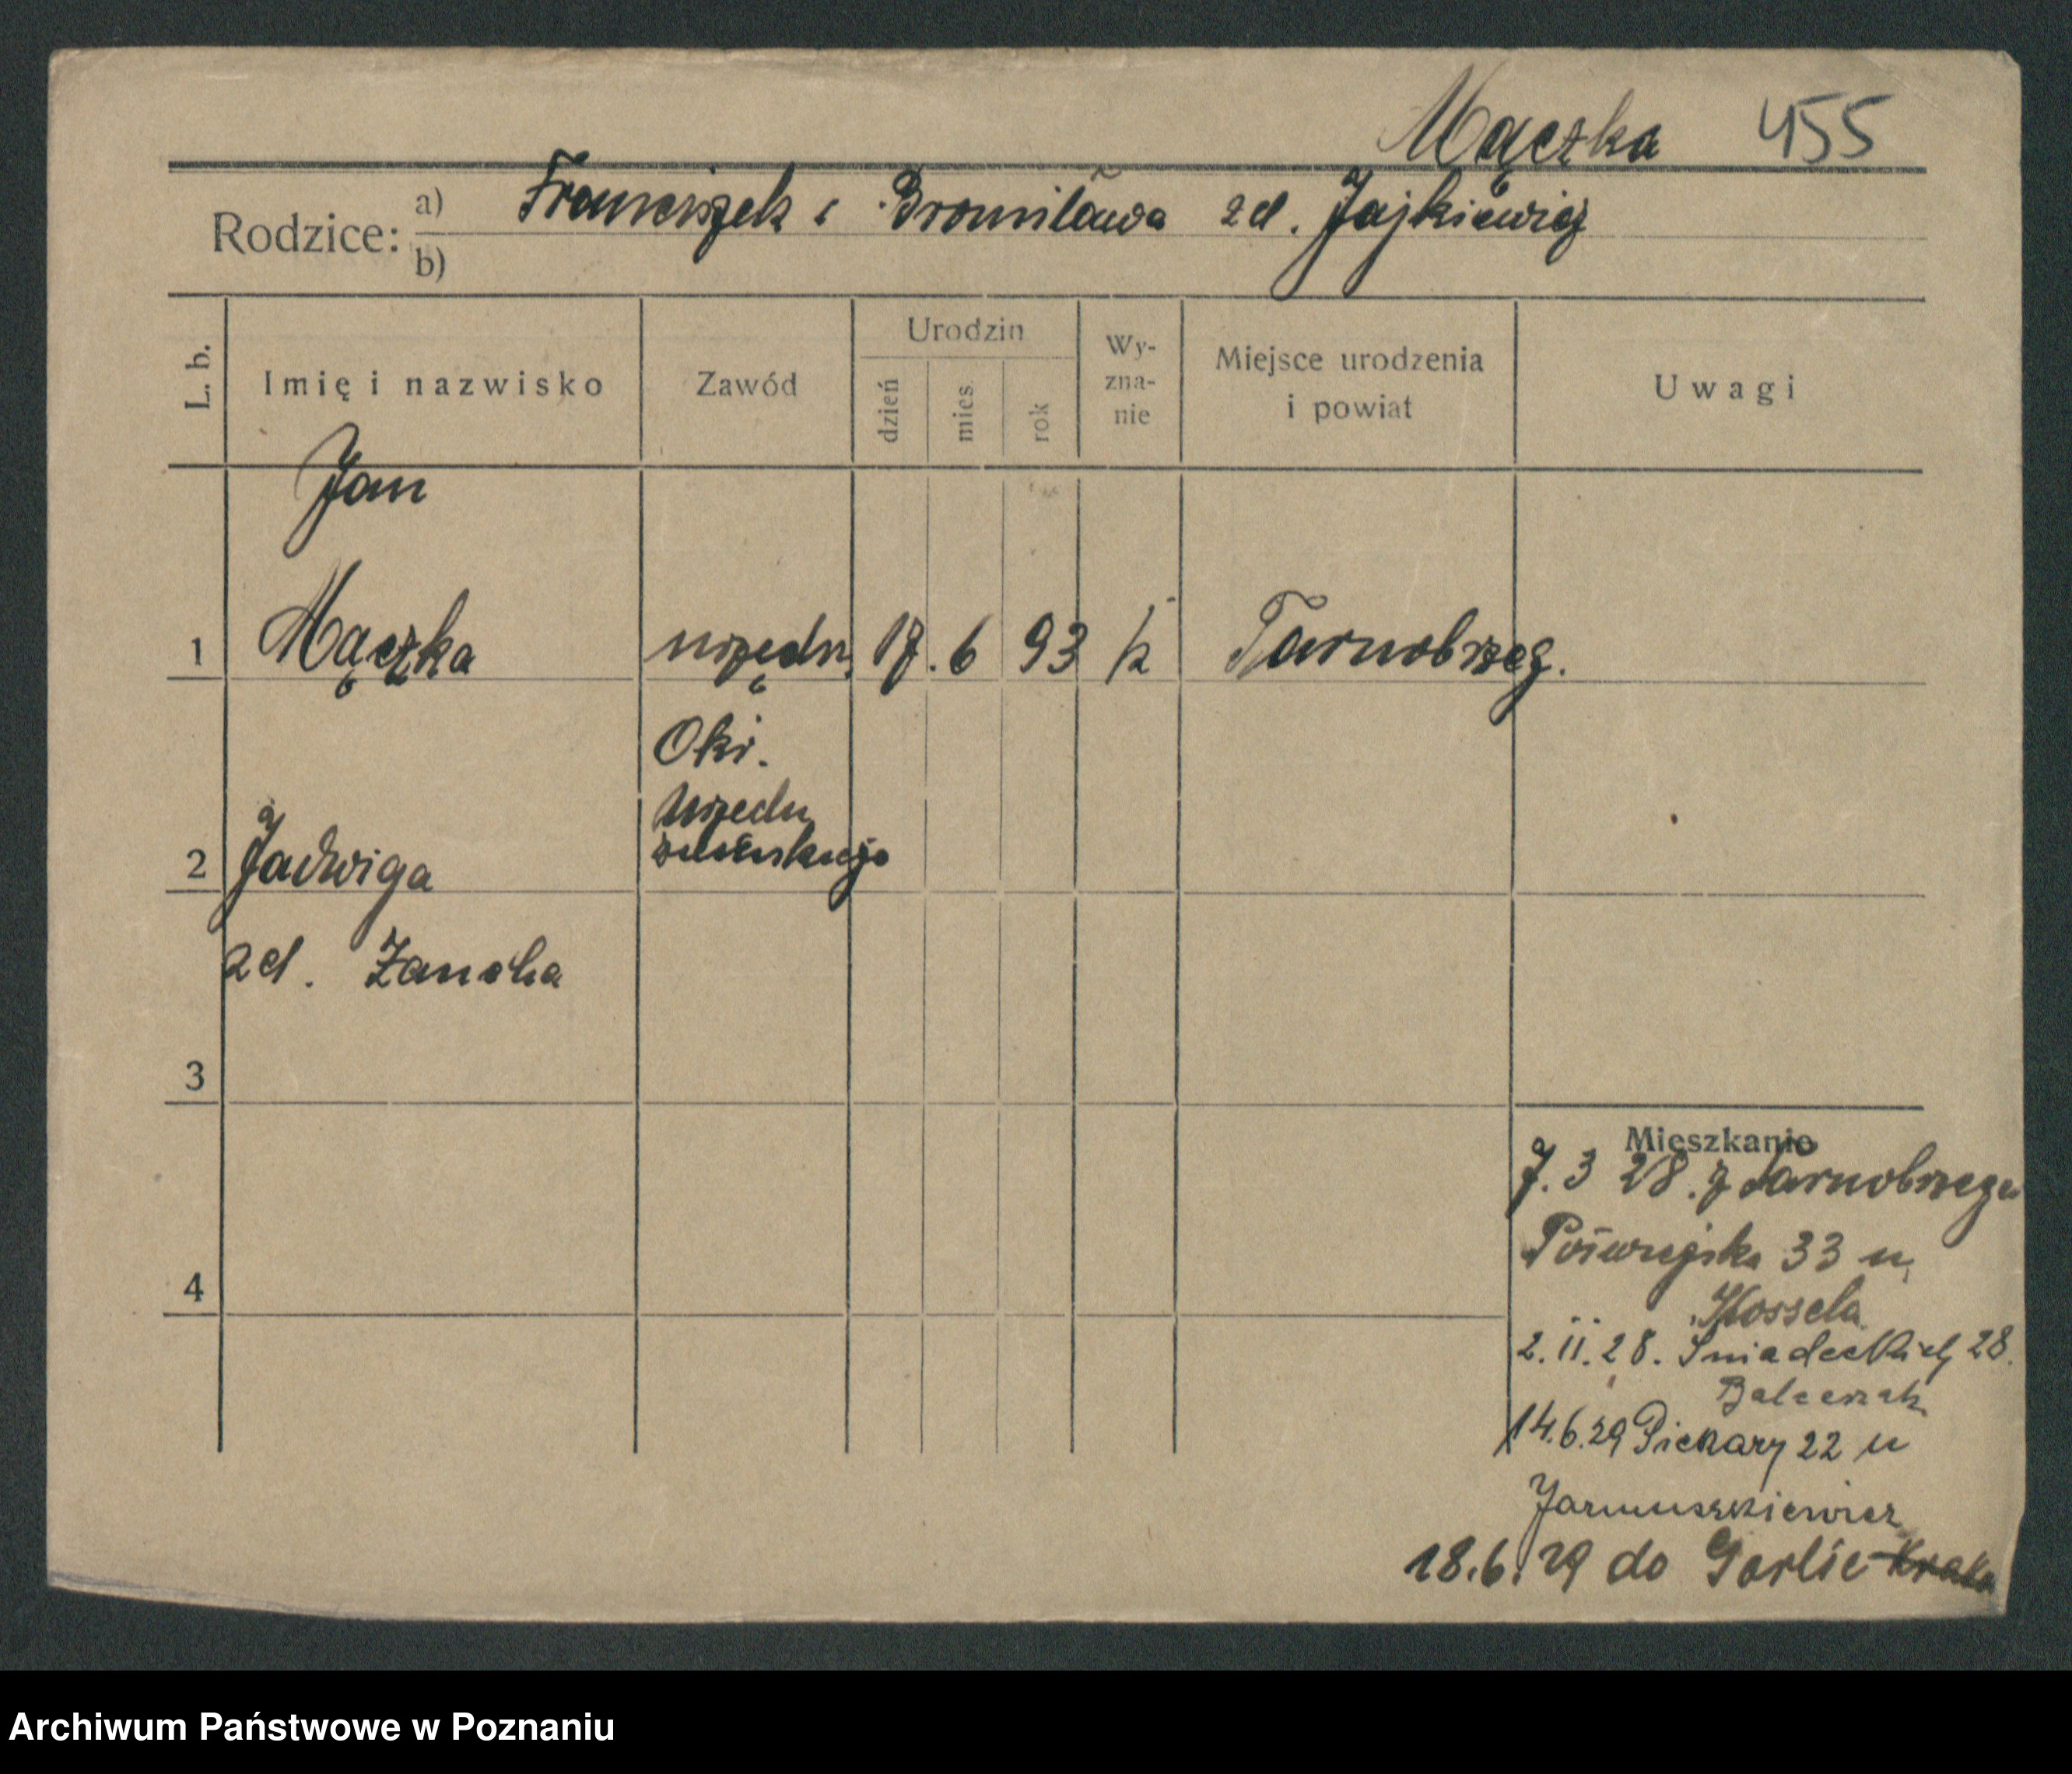 Mączka 455
Rodzice: a) Franciszek i Bronisława zd. Jajkiewicz
b)
L. b.
Imię i nazwisko
Zawód
Urodzin
dzień
mies.
rok
Wy-
zna-
nie
Miejsce urodzenia
i powiat
Uwagi
Jan
1 Mączka urzędn. 17. 6 93 k Tarnobrzeg.
Okr.
Urzędu
2 Jadwiga ziemskiego
zd. Zanoha
3
4
Mieszkanie
7. 3 28. z Tarnobrzega
33 u
Kossela
2. 11. 28. Śniadeckich 28.
Balcerzak
14.6.29 Piekary 22 u
Jarmuszkiewicz
18.6.29 do Gorlic Krako
Archiwum Państwowe w Poznaniu